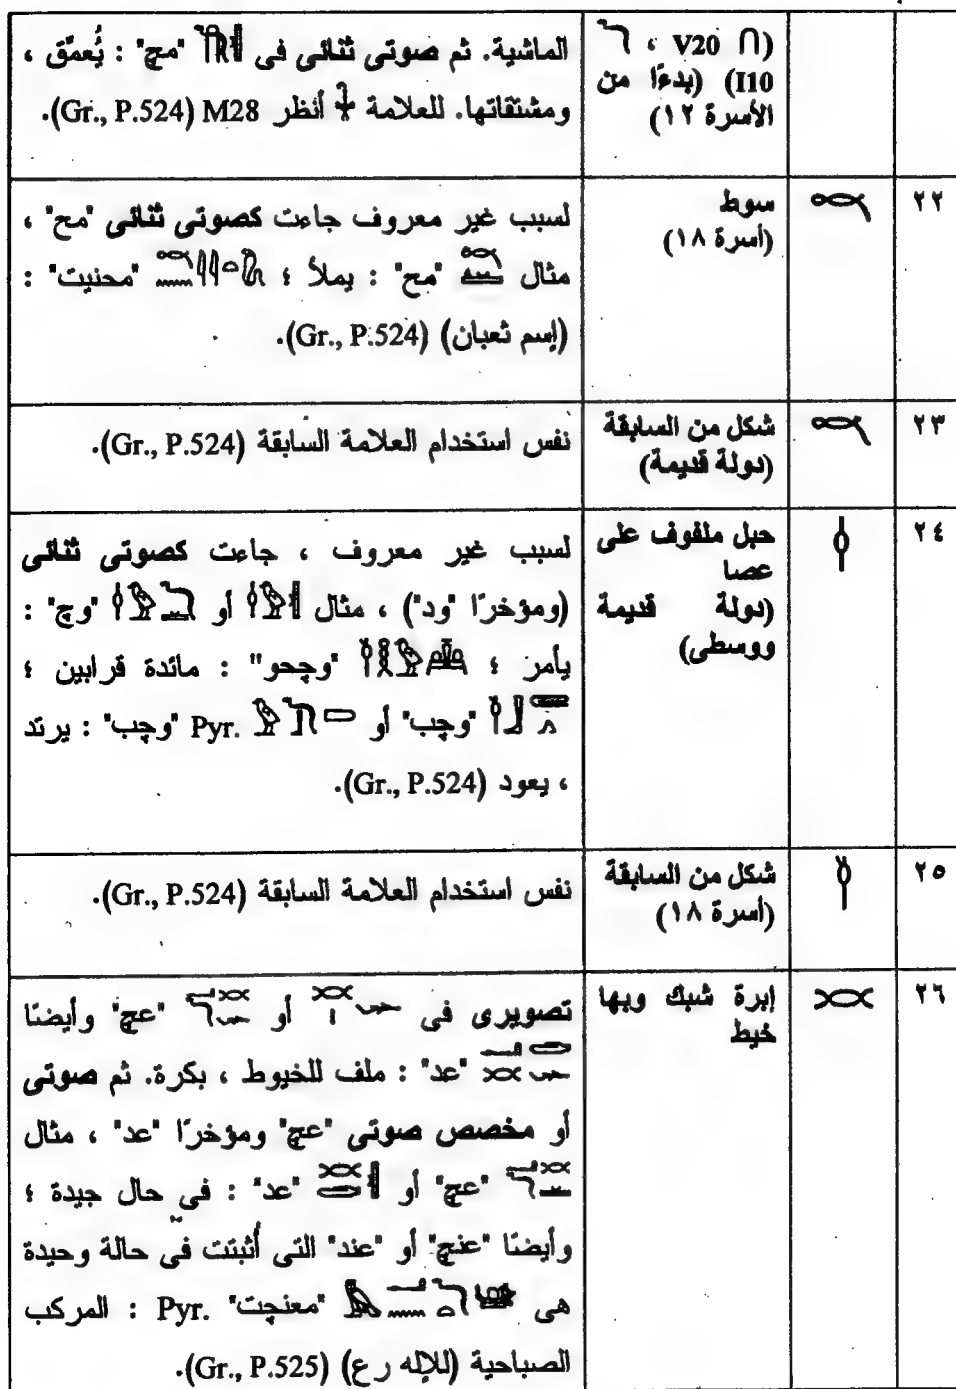 (V20 ∩ ، 𓆓
I10) (بدءًا من
الأسرة ١٢)
الماشية. ثم صوتى ثنائى فى "مچ" : يُعمّق ،
ومشتقاتها. للعلامة أنظر M28 (Gr., P.524).
٢٢
سوط
(أسرة ١٨)
لسبب غير معروف جاءت كصوتى ثنائى "مح" ،
مثال "مح" : يملأ ؛ "محنيت" :
(إسم ثعبان) (Gr., P.524).
٢٣
شكل من السابقة
(دولة قديمة)
نفس استخدام العلامة السابقة (Gr., P.524).
٢٤
حبل ملفوف على
عصا
(دولة قديمة
ووسطى)
لسبب غير معروف ، جاءت كصوتى ثنائى
(ومؤخرًا "ود") ، مثال أو "وچ" :
يأمر ؛ "وچحو" : مائدة قرابين ؛
"وچب" أو Pyr. "وچب" : يرتد
، يعود (Gr., P.524).
٢٥
شكل من السابقة
(أسرة ١٨)
نفس استخدام العلامة السابقة (Gr., P.524).
٢٦
إبرة شبك وبها
خيط
تصويرى فى أو "عچ" وأيضًا
"عد" : ملف للخيوط ، بكرة. ثم صوتى
أو مخصص صوتى "عچ" ومؤخرًا "عد" ، مثال
"عچ" أو "عد" : فى حال جيدة ؛
وأيضًا "عنچ" أو "عند" التى أثبتت فى حالة وحيدة
هى "معنچت" Pyr. : المركب
الصباحية (للإله رع) (Gr., P.525).